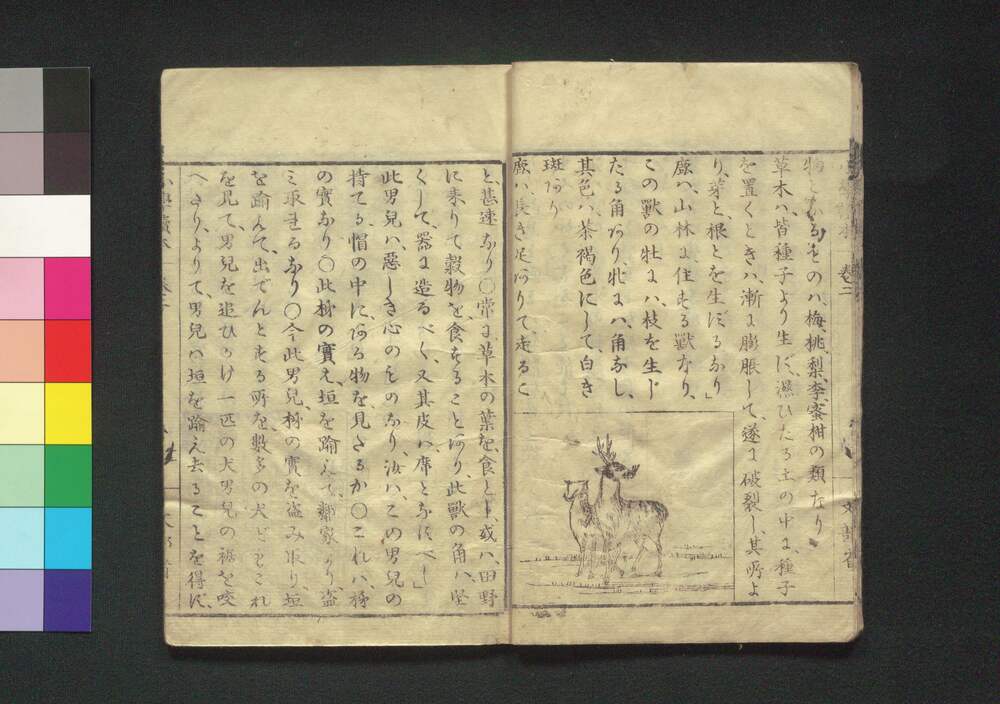 物となるものハ、梅、桃、梨、李、蜜柑の類なり
草木ハ、皆種子より生ず、濕ひたる土の中に、種子
を置くときハ、漸に膨脹して、遂に破裂し、其所よ
り、芽と、根とを生ずるなり」
鹿ハ、山林に住する獣なり、
この獣の牡にハ、枝を生じ
たる角あり、牝にハ、角なし、
其色ハ、茶褐色にして白き
斑あり
鹿ハ、長き足ありて、走るこ
と、甚速なり〇常に草木の葉を、食とし、或ハ、田野
に来りて穀物を、食することあり、此獣の角ハ、堅
くして、器に造るべく、又其皮ハ、席となすべし」
此男兒ハ、惡しき心のものなり、汝ハ、この男兒の
持てる、帽の中に、ある物を、見たるか〇これハ、梯
の實なり〇此梯の實も、垣を踰えて、鄰家より盗
み取れるなり〇今此男兒、梯の實を盗み取り垣
を踰えて、出でんとする所を、數多の犬どもこれ
を見て、男兒を追ひかけ一匹の犬男兒の裾を咬
へたり、よりて、男兒ハ垣を踰え去ることを得ず、
卷二
文部省